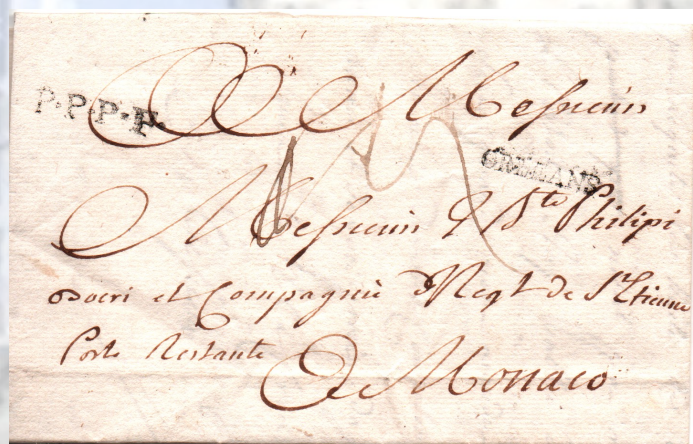 P.P.P.P.
Messieurs
ORLEANS
Messieurs J Bte Philipi
et Compagnie Negt de St Etienne
Poste Restante
A Monaco